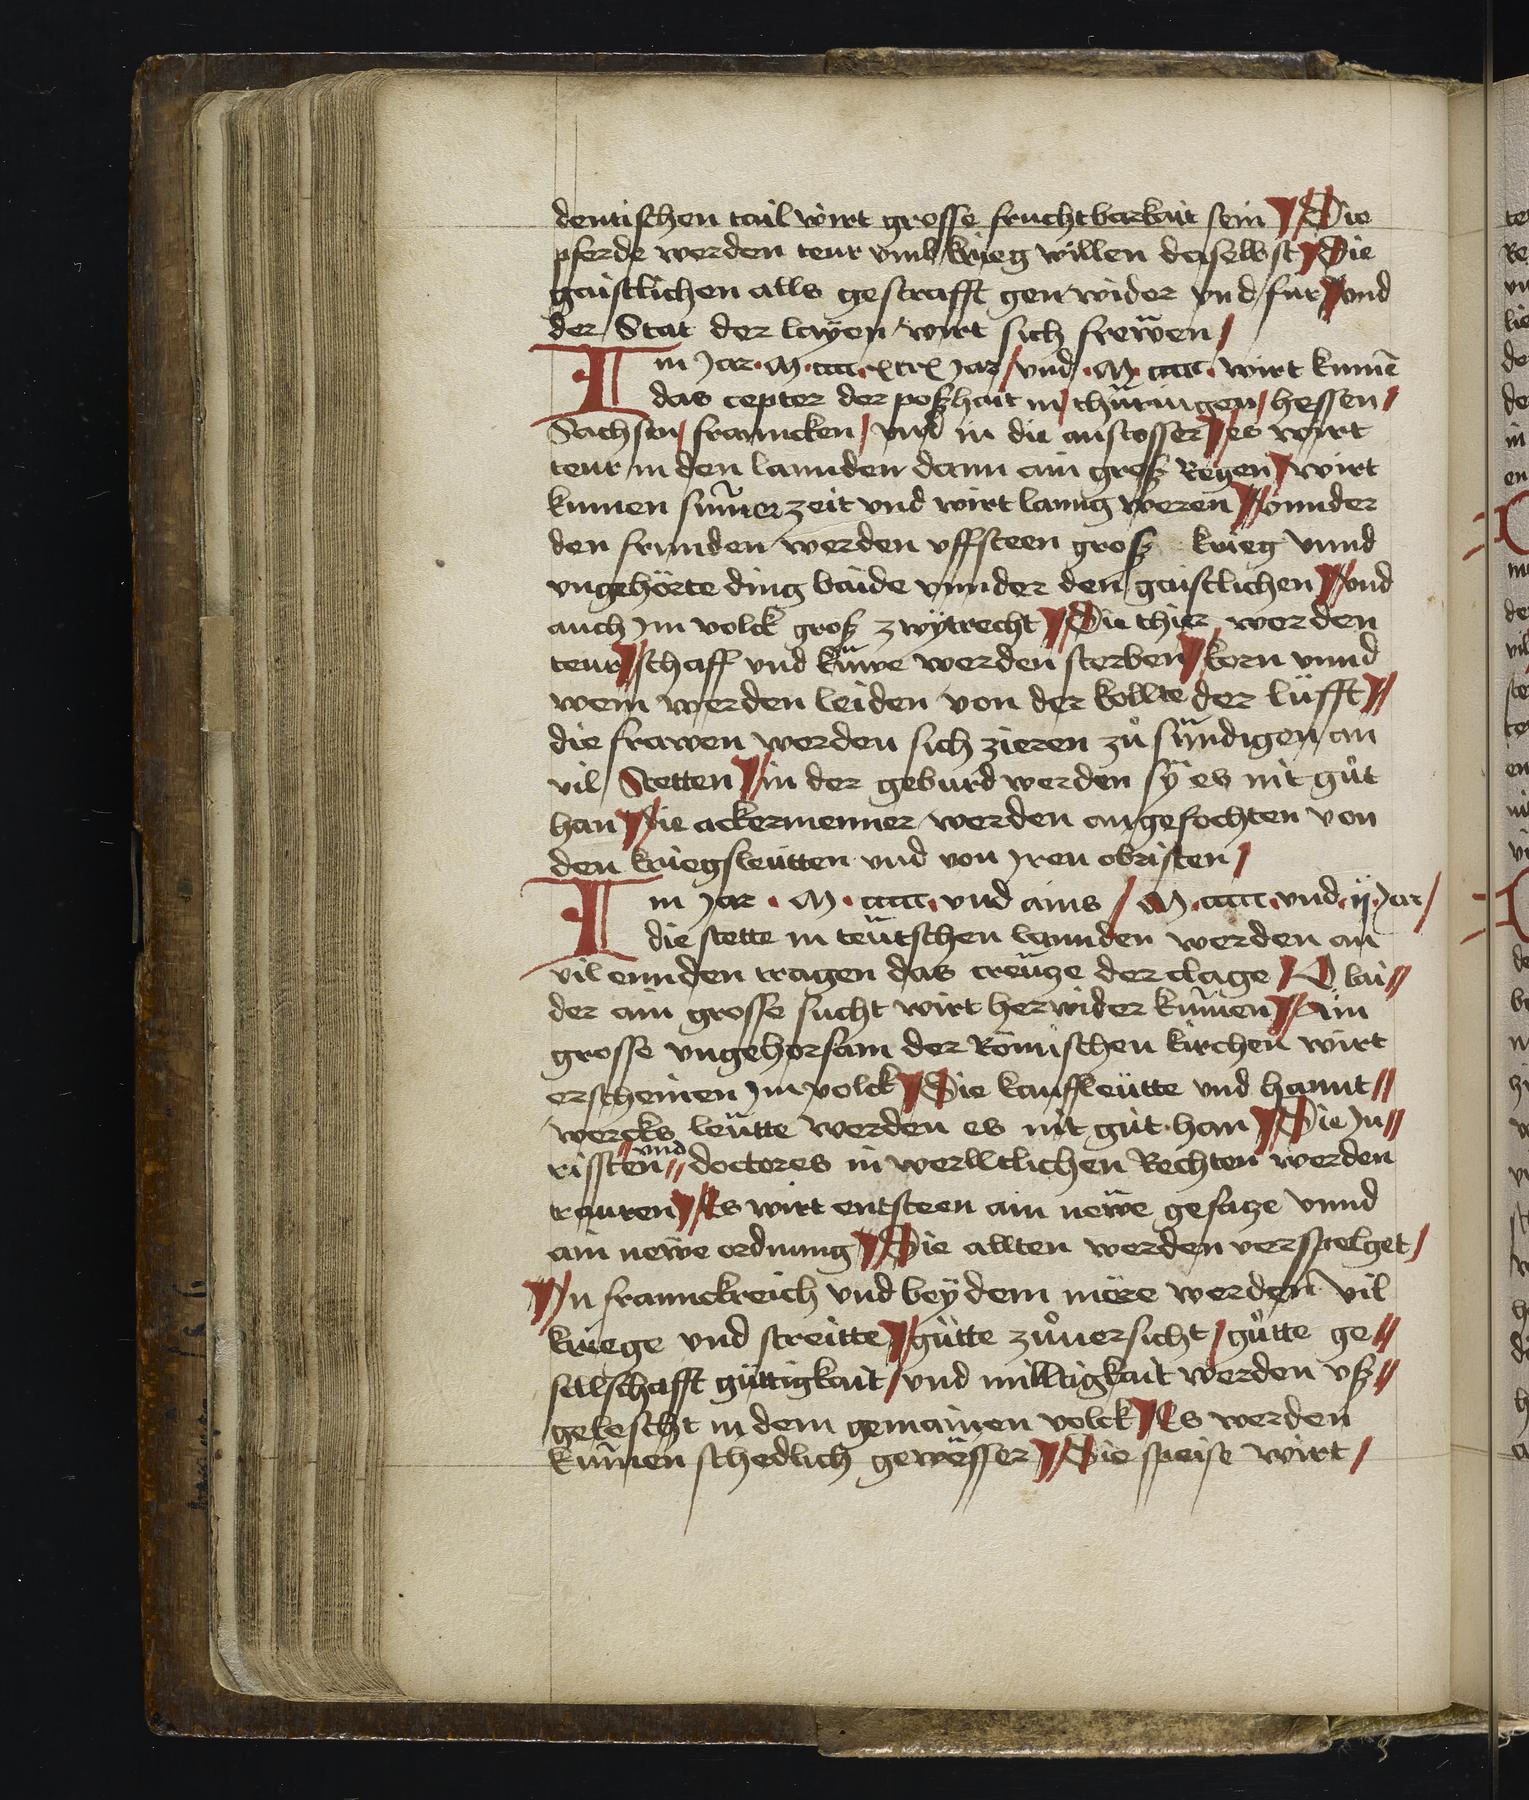 dentischen tail wirt grosse fruchtbarkait sein Die
pferde werden teur vmb krieg willen daselbst Die
gaistlichen alls gestrafft gen wider vnd fur vnd
der Stat der layen wirt sich frewen /
Im Jar · M · cccc · Jar / vnd · M · ccccc · wirt kumē
das cepter der poßhait in / thüringen / hessen /
Sachsen / franncken / vnd in die anstosser / es wirt
teur in den lannden dann ain groß Regen wirt
kumen sūmerzeit vnd wirt lanng weren vnnder
den frunden werden vffsteen groß krieg vnnd
vngehörte ding baide vnnder den gaistlichen vnd
auch Im volck groß zwytrecht Die thier werden
teur schaff vnd küwe werden sterben korn vnnd
wein werden leiden von der kollte der lüfft //
die frawen werden sich zieren zů sündigen an
vil Stetten in der geburd werden sy es nit gůt
han Die ackermenner werden angefochten von
den kriegsleütten vnd von Iren obristen /
Im Jar · M · ccccc · vnd ains / M · ccccc · vnd · ij · Jar /
die stette in teütschen lannden werden an
vil ennden tragen das creütze der clage / O lai //
der ain grosse sucht wirt herwider kūmen Ain
grosse vngehorsam der Römischen kirchen wirt
erscheinen Im volck Die kauffleütte vnd hannt //
wercks leütte werden es nit gůt han Die Ju //
rissten // vnd // doctores in werlltlichen Rechten werden
trauren Es wirt entsteen ain newe gesatze vnnd
ain newe ordnung Die allten werden verspelget /
In franckreich vnd bey dem möre werden vil
kriege vnd streitte gůtte zůuersicht / gůtte ge //
selschafft gůttigkait / vnd milltigkait werden vß //
gelescht in dem gemainen volck Es werden
kūmen schedlich gewesser Die speise wirt /